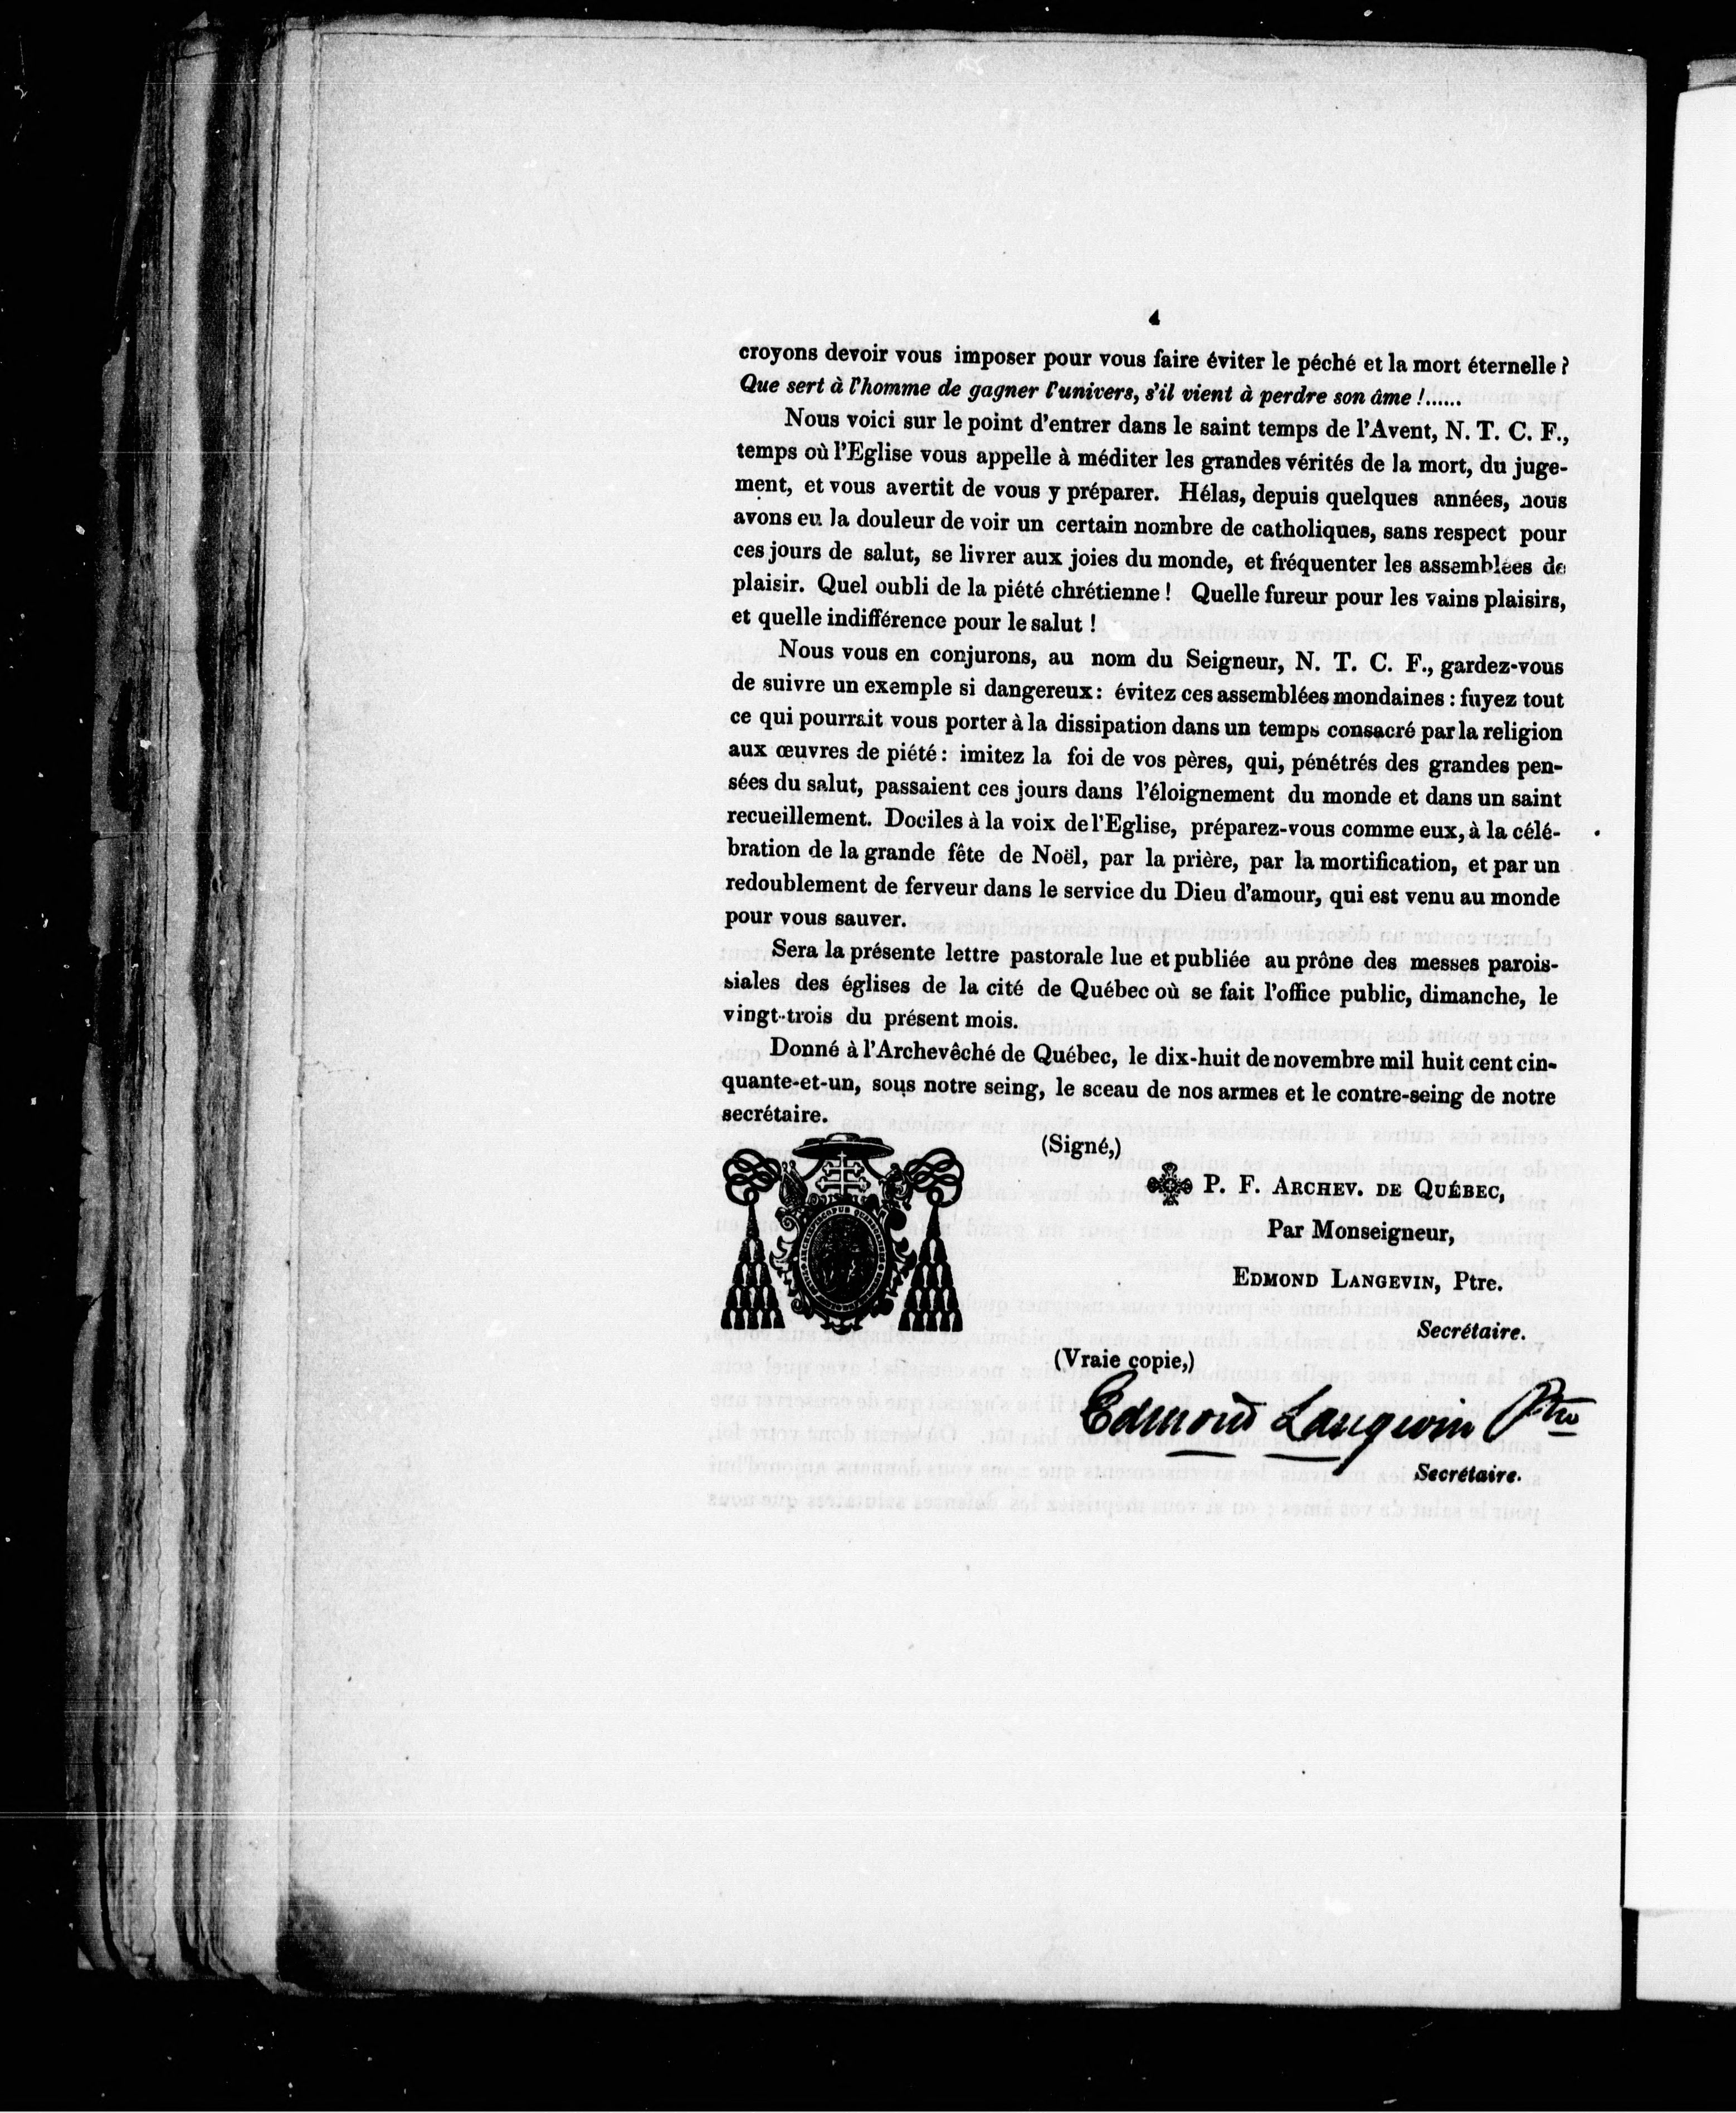 4
croyons devoir vous imposer pour vous faire éviter le péché et la mort éternelle ?
Que sert à l'homme de gagner l'univers, s'il vient à perdre son âme !......
Nous voici sur le point d'entrer dans le saint temps de l'Avent, N. T. C. F.,
temps où l'Eglise vous appelle à méditer les grandes vérités de la mort, du juge-
ment, et vous avertit de vous y préparer. Hélas, depuis quelques années, nous
avons eu la douleur de voir un certain nombre de catholiques, sans respect pour
ces jours de salut, se livrer aux joies du monde, et fréquenter les assemblées de
plaisir. Quel oubli de la piété chrétienne ! Quelle fureur pour les vains plaisirs,
et quelle indifférence pour le salut !
Nous vous en conjurons, au nom du Seigneur, N. T. C. F., gardez-vous
de suivre un exemple si dangereux : évitez ces assemblées mondaines : fuyez tout
ce qui pourrait vous porter à la dissipation dans un temps consacré par la religion
aux œuvres de piété : imitez la foi de vos pères, qui, pénétrés des grandes pen-
sées du salut, passaient ces jours dans l'éloignement du monde et dans un saint
recueillement. Dociles à la voix de l'Eglise, préparez-vous comme eux, à la célé-
bration de la grande fête de Noël, par la prière, par la mortification, et par un
redoublement de ferveur dans le service du Dieu d'amour, qui est venu au monde
pour vous sauver.
Sera la présente lettre pastorale lue et publiée au prône des messes parois-
siales des églises de la cité de Québec où se fait l'office public, dimanche, le
vingt-trois du présent mois.
Donné à l'Archevêché de Québec, le dix-huit de novembre mil huit cent cin-
quante-et-un, sous notre seing, le sceau de nos armes et le contre-seing de notre
secrétaire.
(Signé,)
P. F. ARCHEV. DE QUÉBEC,
Par Monseigneur,
EDMOND LANGEVIN, Ptre.
Secrétaire.
(Vraie copie,)
Edmond Langevin Ptre
Secrétaire.